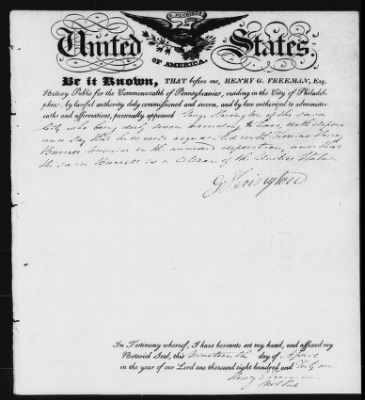 E PLURIBUS UNUM
United States
OF AMERICA.
Be it Known, THAT before me, HENRY G. FREEMAN, Esq.
Notary Public for the Commonwealth of Pennsylvania, residing in the City of Philadel-
phia, by lawful authority duly commissioned and sworn, and by law authorized to administer
oaths and affirmations, personally appeared George of the said
City who being duly sworn according to Law, doth depose
and say that he is well acquainted with
in the annexed and that
the said is a Citizen of the United States.
In Testimony whereof, I have hereunto set my hand, and affixed my
Notarial Seal, this nineteenth day of April
in the year of our Lord one thousand eight hundred and Forty one
Henry G Freeman
Not Pub